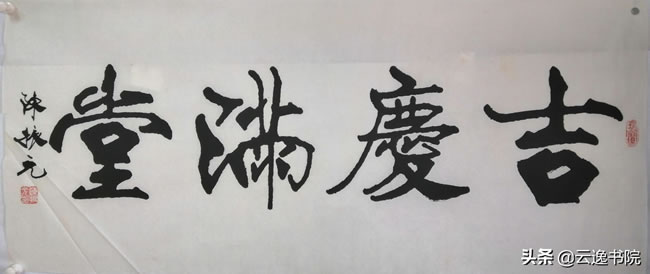 吉慶滿堂
陳振元
头条 @云逸书院